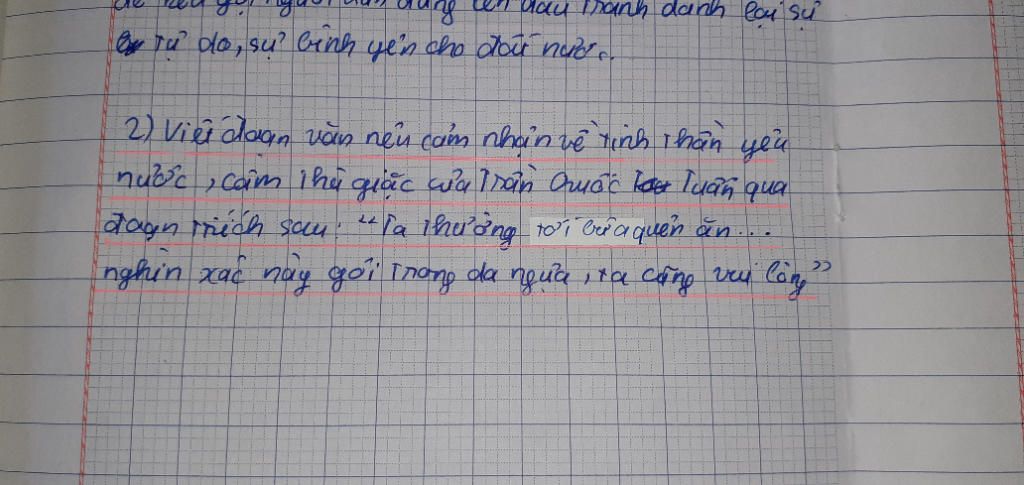 để kêu gọi người dân đứng lên đấu tranh dành lại sự
tự do, sự bình yên cho đất nước.
2) Viết đoạn văn nêu cảm nhận về tinh thần yêu
nước, căm thù giặc của Trần Quốc Tuấn qua
đoạn trích sau: "Ta thường tới bữa quên ăn...
nghìn xác này gói trong da ngựa, ta cũng vui lòng"